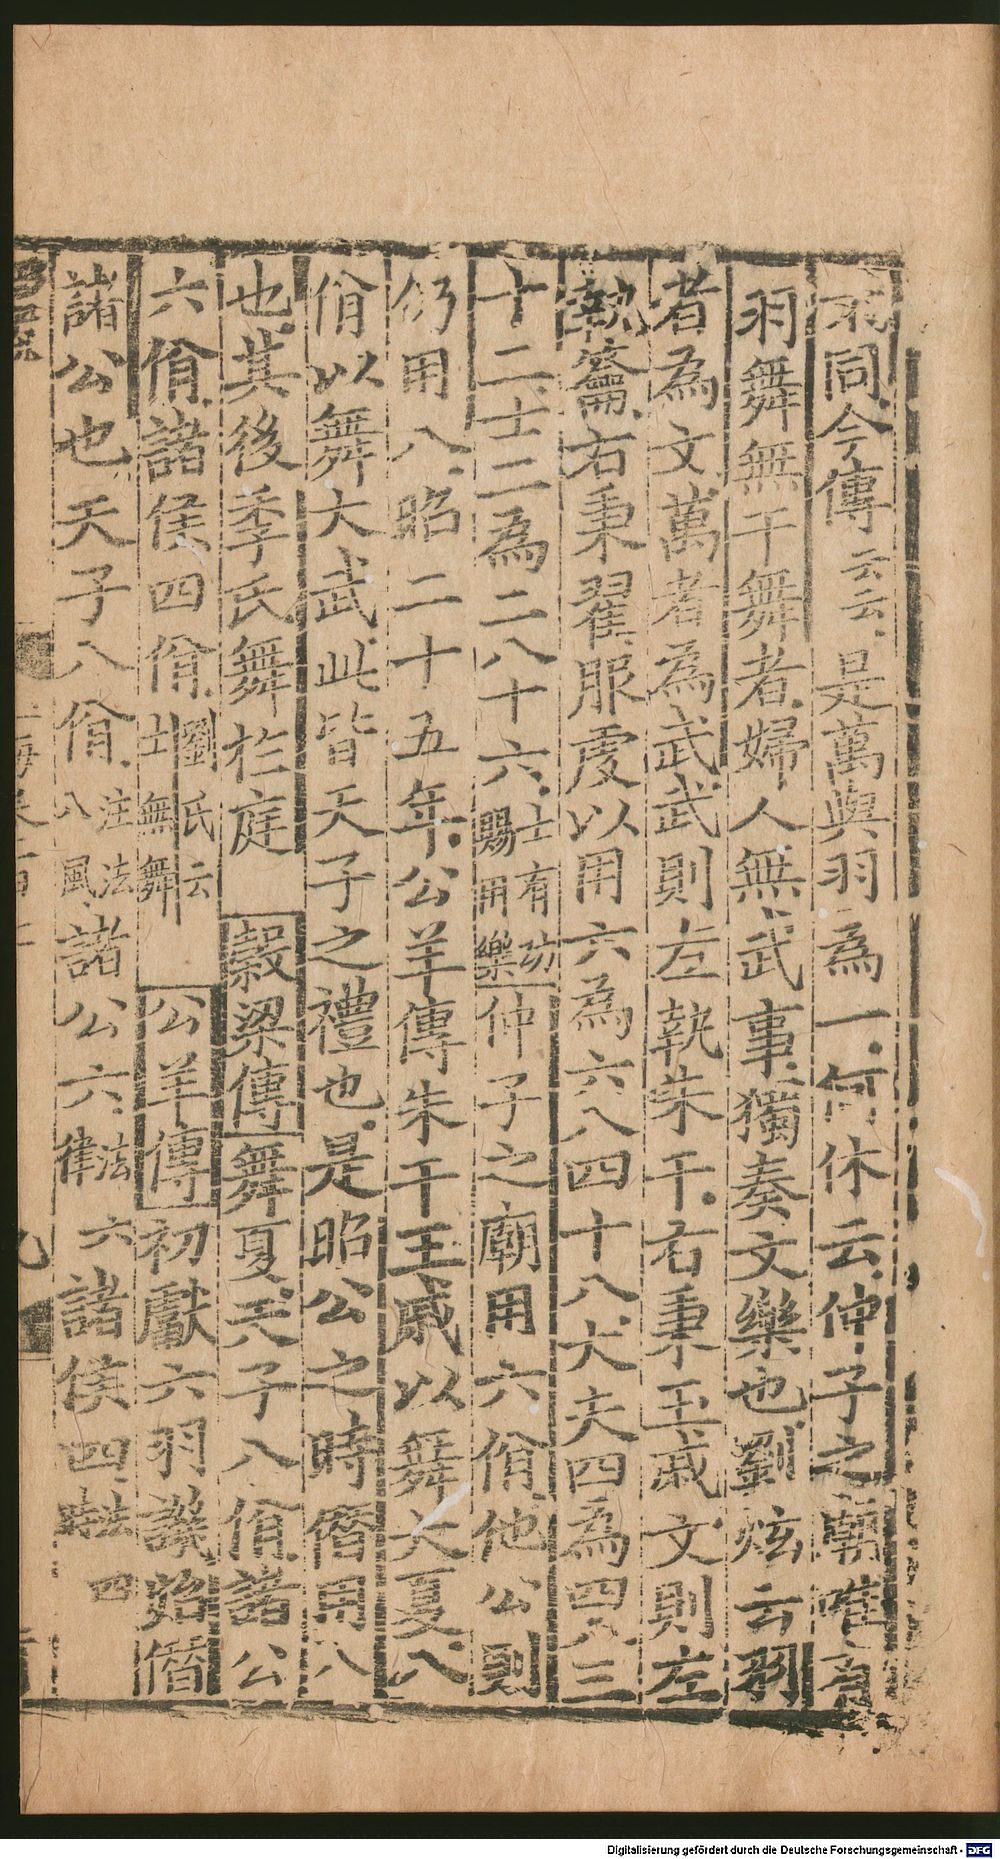 不同今傳云云是萬與羽為一何休云仲子之廟唯有
羽舞無干舞者婦人無武事獨奏文樂也劉炫云羽
者為文萬者為武武則左執朱干右秉玉戚文則左
執籥右秉翟服虔以用六為六八四十八大夫四為四八三
十二士二為二八十六士有功賜用樂仲子之廟用六佾他公則
仍用八昭二十五年公羊傳朱干玉戚以舞大夏八
佾以舞大武此皆天子之禮也是昭公之時僭用八
也其後季氏舞於庭 穀梁傳舞夏天子八佾諸公
六佾諸侯四佾劉氏云士無舞 公羊傳初獻六羽譏始僭
諸公也天子八佾注法八風諸公六法六律諸侯四法四時
玉海卷一百七
九
Digitalisierung gefördert durch die Deutsche Forschungsgemeinschaft - DFG